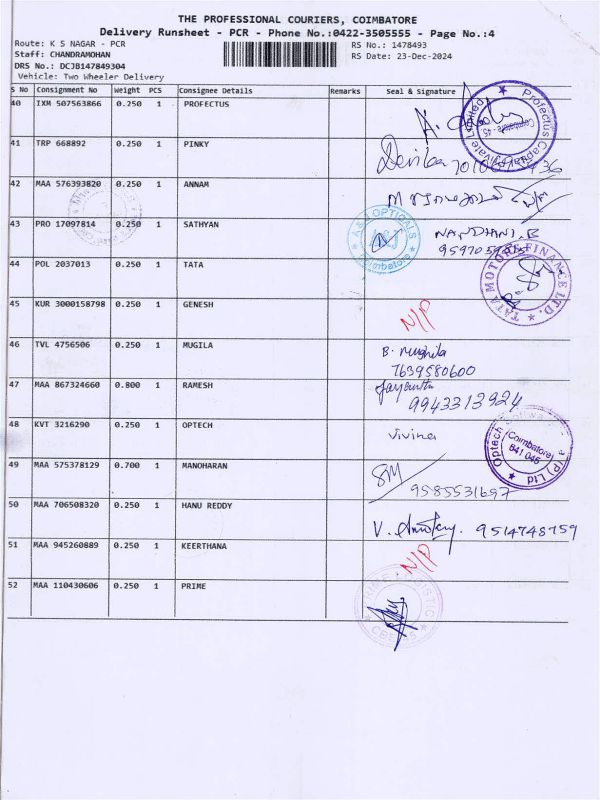 THE PROFESSIONAL COURIERS, COIMBATORE
Delivery Runsheet - PCR - Phone No.:0422-3505555 - Page No.:4
Route: K S NAGAR - PCR
RS No.: 1478493
Staff: CHANDRAMOHAN
RS Date: 23-Dec-2024
DRS No.: DCJB147849304
Vehicle: Two Wheeler Delivery
S No Consignment No Weight PCS Consignee Details Remarks Seal & Signature
40 IXM 507563866 0.250 1 PROFECTUS
Profectus Capital Private Limited
41 TRP 668892 0.250 1 PINKY
Devika
42 MAA 576393820 0.250 1 ANNAM
43 PRO 17097814 0.250 1 SATHYAN
A&J OPTICALS
A&J
Coimbatore
NANDHANI.B
44 POL 2037013 0.250 1 TATA
TATA MOTORS FINANCE LTD.
45 KUR 3000158798 0.250 1 GENESH
N/P
46 TVL 4756506 0.250 1 MUGILA
B. Mughila
7639580600
47 MAA 867324660 0.800 1 RAMESH
Jayanthi
9943313924
48 KVT 3216290 0.250 1 OPTECH
Vivina
Optech Software (P) Ltd
Coimbatore
641 045
49 MAA 575378129 0.700 1 MANOHARAN
SM
9585531697
50 MAA 706508320 0.250 1 HANU REDDY
V. 9514748759
51 MAA 945260889 0.250 1 KEERTHANA
N/P
52 MAA 110430606 0.250 1 PRIME